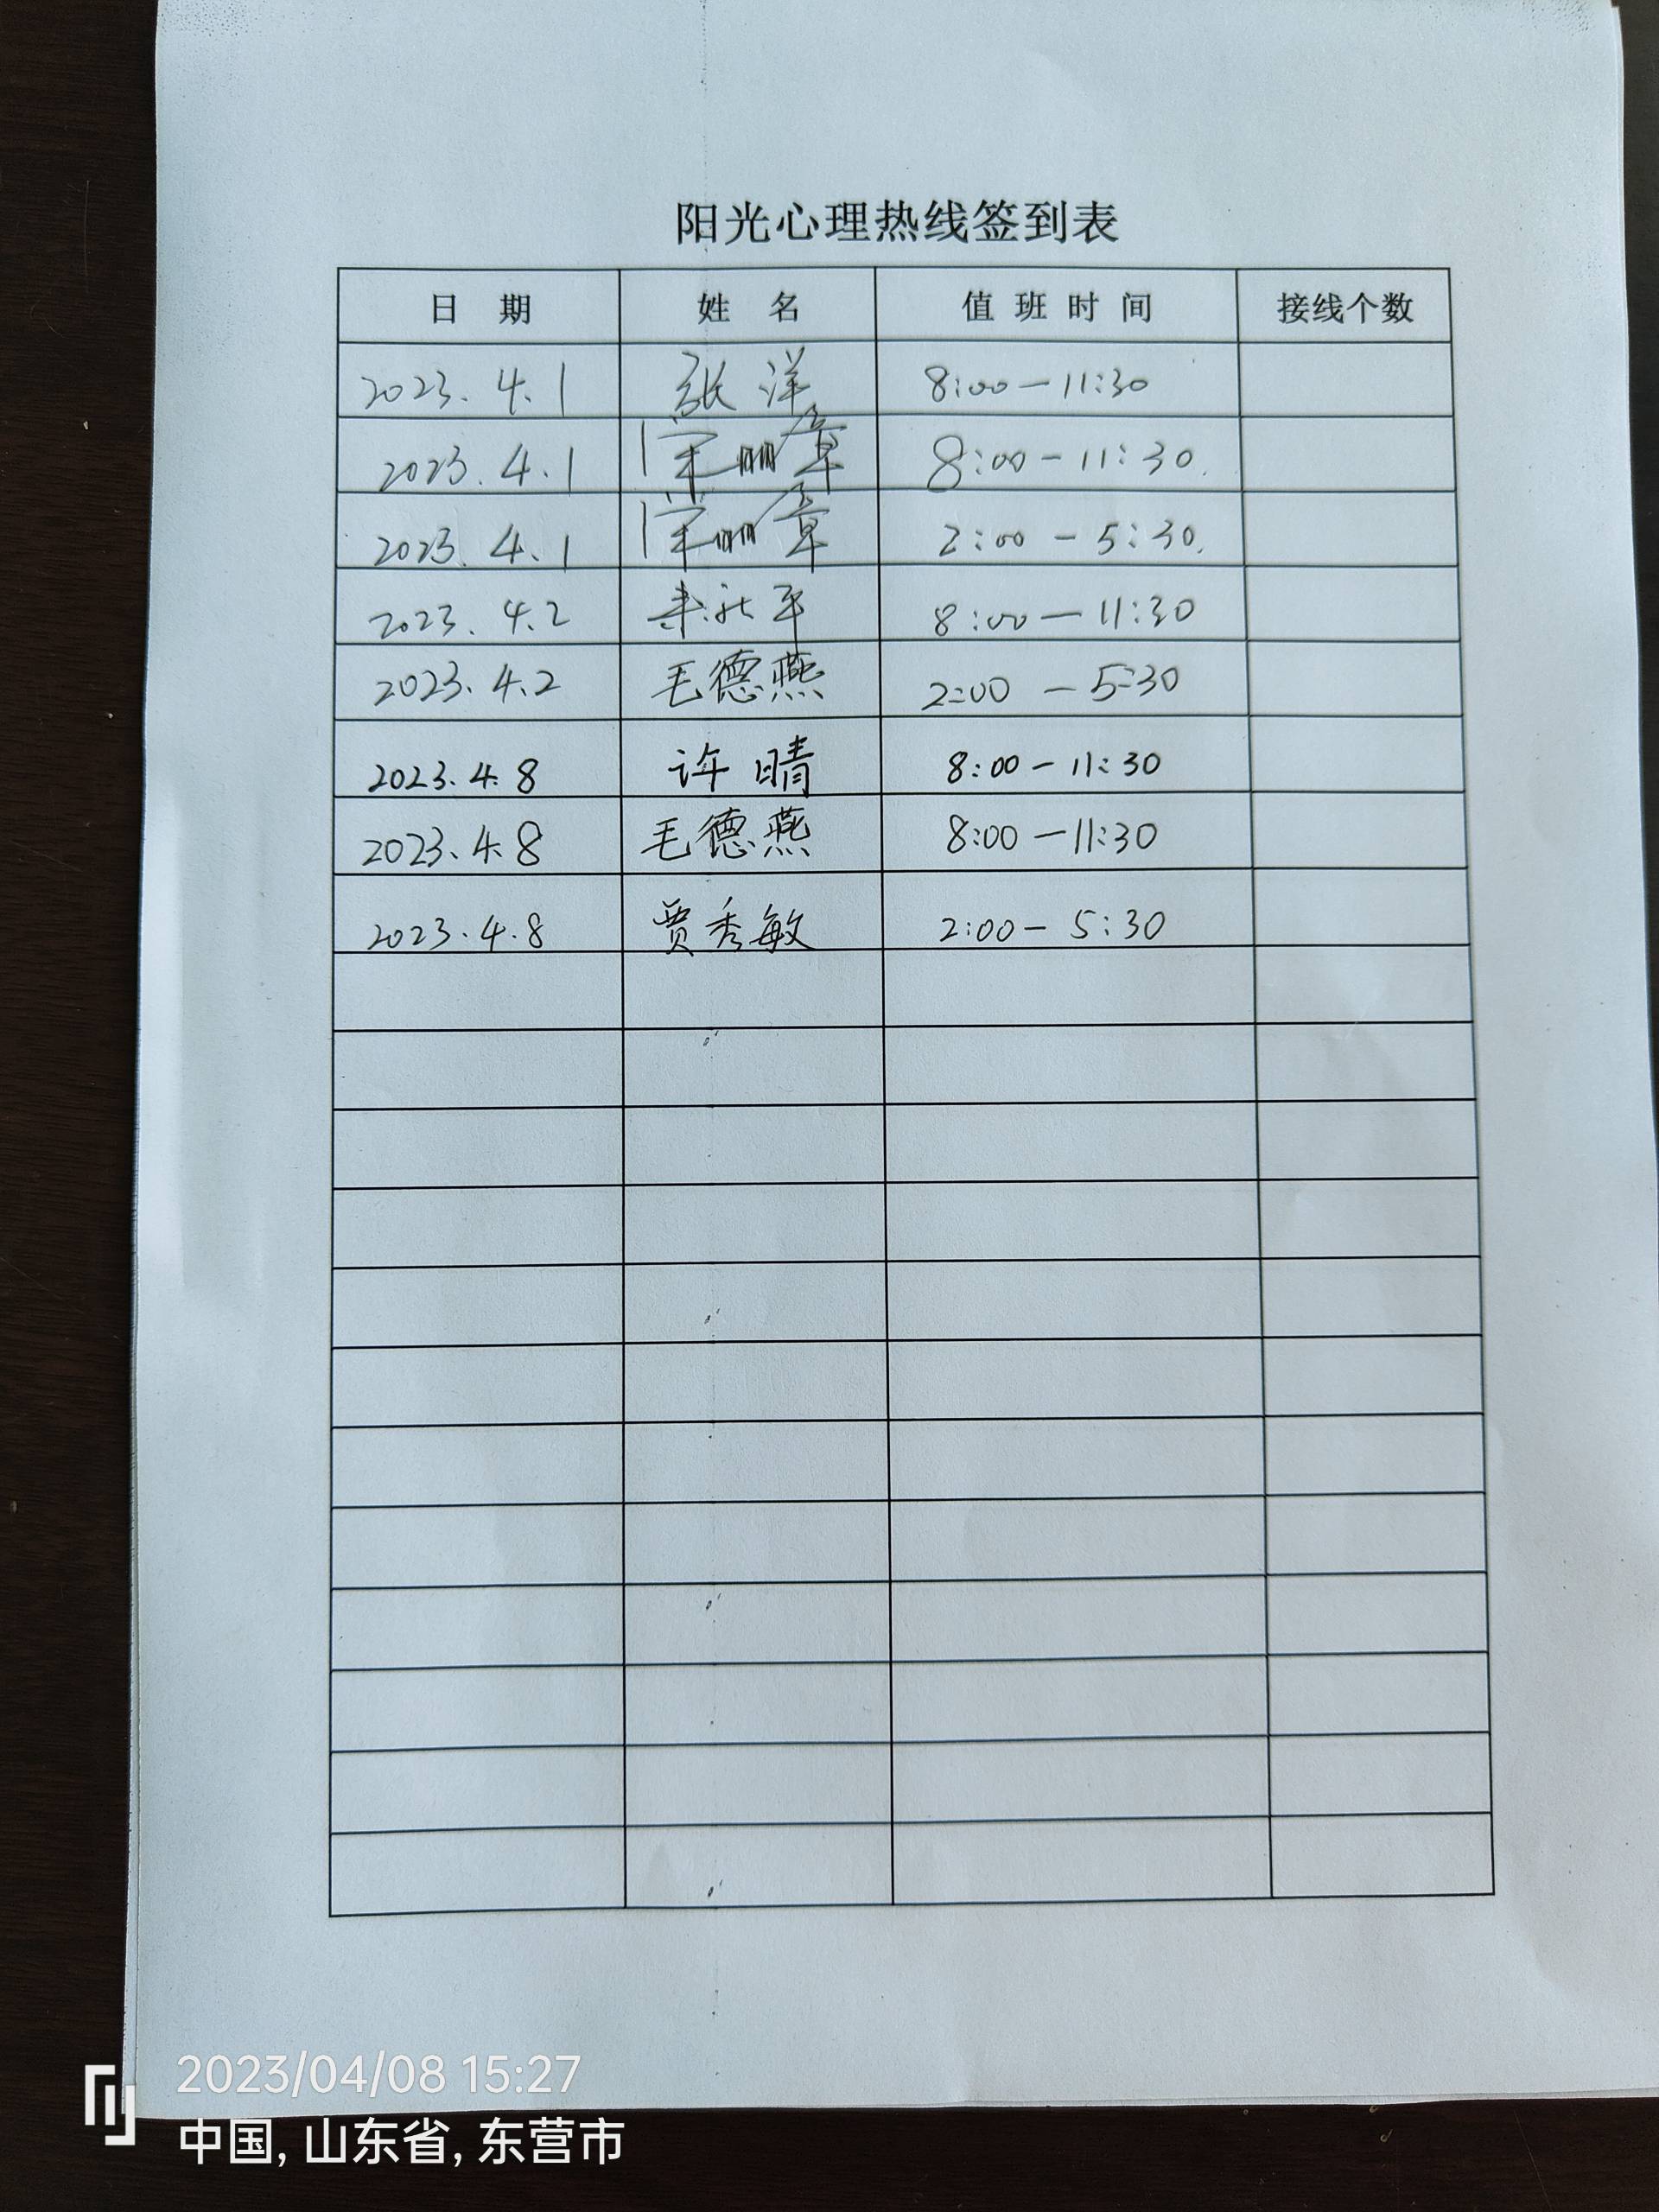 阳光心理热线签到表
日 期 姓 名 值 班 时 间 接线个数
2023.4.1 张洋 8:00-11:30
2023.4.1 8:00-11:30.
2023.4.1 2:00-5:30.
2023.4.2 8:00-11:30
2023.4.2 毛德燕 2:00-5:30
2023.4.8 许晴 8:00-11:30
2023.4.8 毛德燕 8:00-11:30
2023.4.8 贾秀敏 2:00-5:30
2023/04/08 15:27
中国, 山东省, 东营市